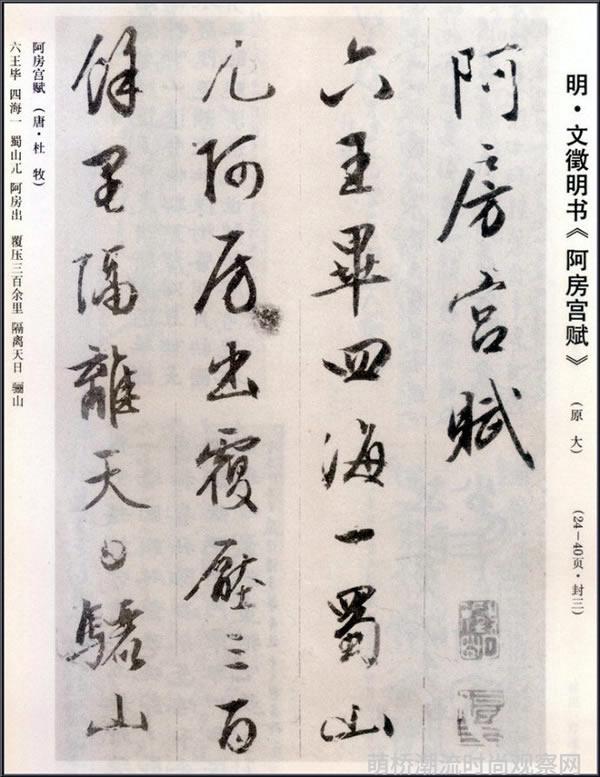 明·文徵明书《阿房宫赋》 （原大） （24—40页·封三）
阿房宮賦
六王畢四海一蜀山
兀阿房出覆壓三百
餘里隔離天日驪山
阿房宫赋（唐·杜 牧）
六王毕 四海一 蜀山兀 阿房出 覆压三百余里 隔离天日 骊山
萌桥潮流时尚观察网